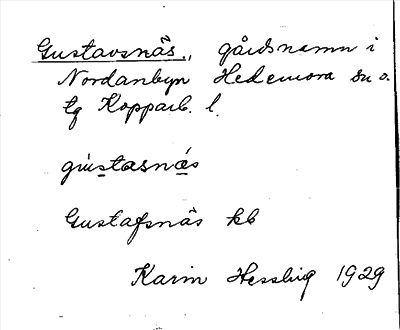 Gustavsnäs., gårdsnamn i
Nordanbyn Hedemora sn o.
tg Kopparb. l.
gustasnás
Gustafsnäs kb
Karin Hessling 1929